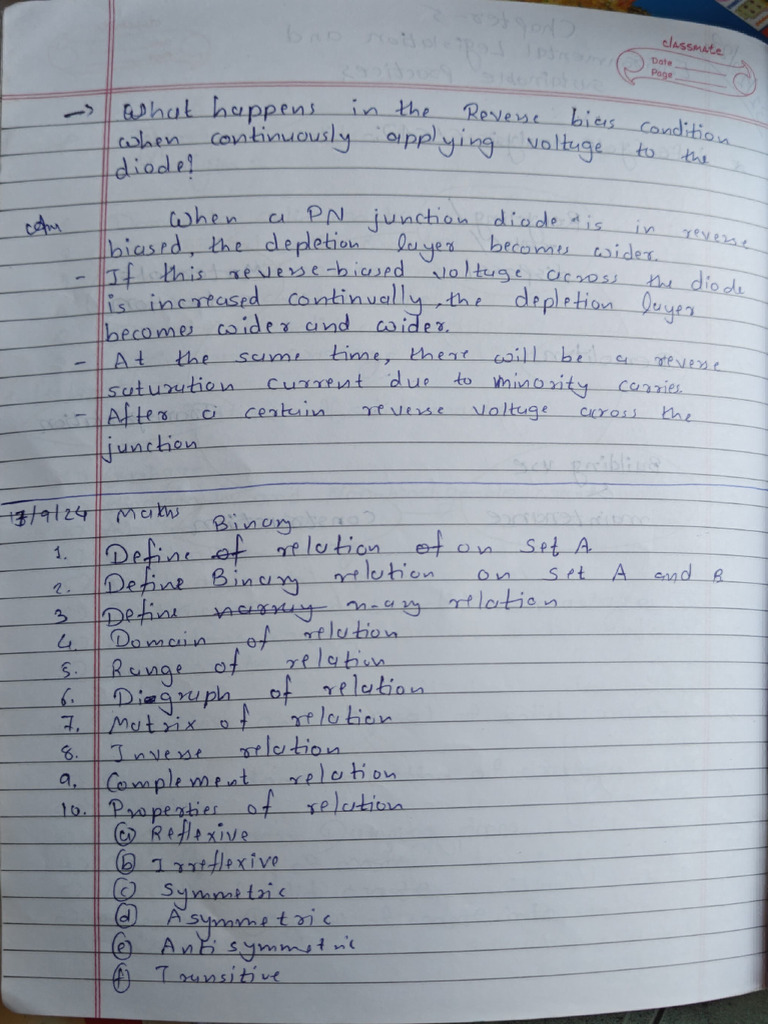 classmate
Date
Page
→ What happens in the Reverse bias condition
when continuously applying voltage to the
diode?
When a PN junction diode is in reverse
biased, the depletion layer becomes wider.
- If this reverse-biased voltage across the diode
is increased continually, the depletion layer
becomes wider and wider.
- At the same time, there will be a reverse
saturation current due to minority carries.
- After a certain reverse voltage across the
junction
/9/24 Maths
Binary
1. Define of relation of on set A
2. Define Binary relation on set A and B
3 Define n-ary relation
4. Domain of relation
5. Range of relation
6. Diagraph of relation
7. Matrix of relation
8. Inverse relation
9. Complement relation
10. Properties of relation
(a) Reflexive
(b) Irreflexive
(c) Symmetric
(d) Asymmetric
(e) Anti symmetric
(f) Transitive